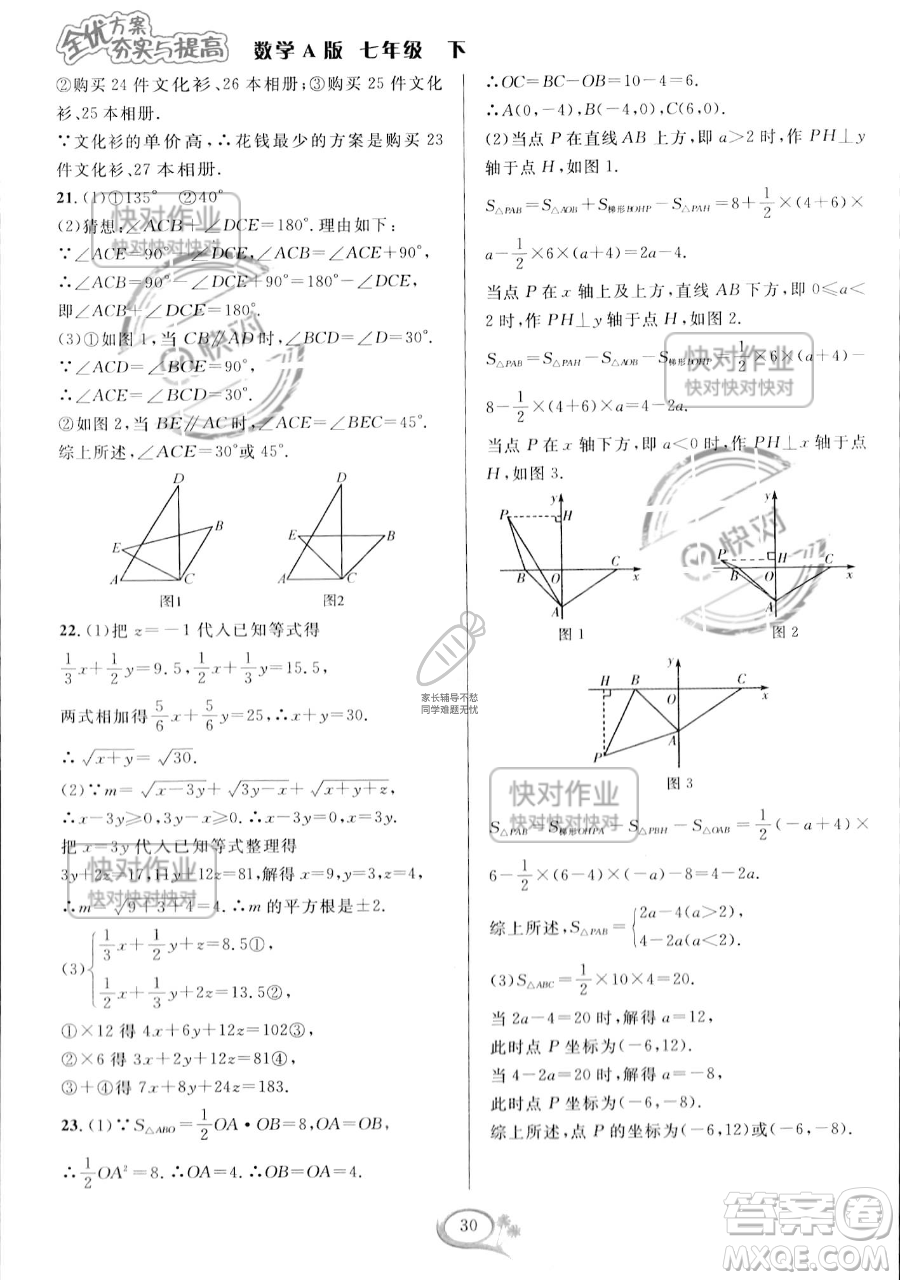 全优方案
夯实与提高
数学A版 七年级 下
②购买24件文化衫、26本相册;③购买25件文化
衫、25本相册.
∵文化衫的单价高,∴花钱最少的方案是购买23
件文化衫、27本相册.
21. (1)①135° ②40°
(2)猜想:∠ACB+∠DCE=180°.理由如下:
∵∠ACE=90°-∠DCE,
∴∠ACB=∠ACE+90°=90°-∠DCE+90°=180°-∠DCE,
即∠ACB+∠DCE=180°.
(3)①如图1,当CB∥AD时,∠BCD=∠D=30°.
∵∠ACD=∠BCE=90°,
∴∠ACE=∠BCD=30°.
②如图2,当BE∥AC时,∠ACE=∠BEC=45°.
综上所述,∠ACE=30°或45°.
D
E
B
A
C
图1
D
E
B
A
C
图2
22. (1)把z=-1代入已知等式得
1/3x+1/2y=9.5,1/2x+1/3y=15.5,
两式相加得5/6x+5/6y=25,∴x+y=30.
∴√(x+y)=√30.
(2)∵m=√(x-3y)+√(3y-x)+√(x+y+z),
∴x-3y≥0,3y-x≥0.∴x=3y.
把x=3y代入已知等式整理得
3y+2z=17,11y+12z=81,解得y=3,z=4,x=9.
∴m=√(9+3+4)=4.∴m的平方根是±2.
(3){1/3x+1/2y+z=8.5①,
1/2x+1/3y+2z=13.5②,
①×12得4x+6y+12z=102③,
②×6得3x+2y+12z=81④,
③+④得7x+8y+24z=183.
23. (1)∵S△ABO=1/2OA·OB=8,OA=OB,
∴1/2OA²=8.∴OA=4.∴OB=OA=4.
∴OC=BC-OB=10-4=6.
∴A(0,-4),B(-4,0),C(6,0).
(2)当点P在直线AB上方,即a>2时,作PH⊥y
轴于点H,如图1.
S△PAB=S△AOB+S梯形BOHP-S△PAH=8+1/2×(4+6)×
a-1/2×6×(a+4)=2a-4.
当点P在x轴上及上方,直线AB下方,即0≤a<
2时,作PH⊥y轴于点H,如图2.
S△PAB=S△PAH-S△AOB-S梯形BOHP=1/2×6×(a+4)-
8-1/2×(4+6)×a=4-2a.
当点P在x轴下方,即a<0时,作PH⊥x轴于点
H,如图3.
y
P
H
B
O
C
x
A
图1
y
P
H
B
O
C
x
A
图2
H
B
y
O
C
x
A
P
图3
S△PAB=S梯形OHPA-S△PBH-S△OAB=1/2(-a+4)×
6-1/2×(6-4)×(-a)-8=4-2a.
综上所述,S△PAB={2a-4(a>2),
4-2a(a<2).
(3)S△ABC=1/2×10×4=20.
当2a-4=20时,解得a=12,
此时点P坐标为(-6,12).
当4-2a=20时,解得a=-8,
此时点P坐标为(-6,-8).
综上所述,点P的坐标为(-6,12)或(-6,-8).
快对作业
快对快对快对
快对
家长辅导不愁
同学难题无忧
快对作业
快对快对快对
快对
快对作业
快对快对快对
快对作业
快对快对快对
30
答案卷
MXQE.COM